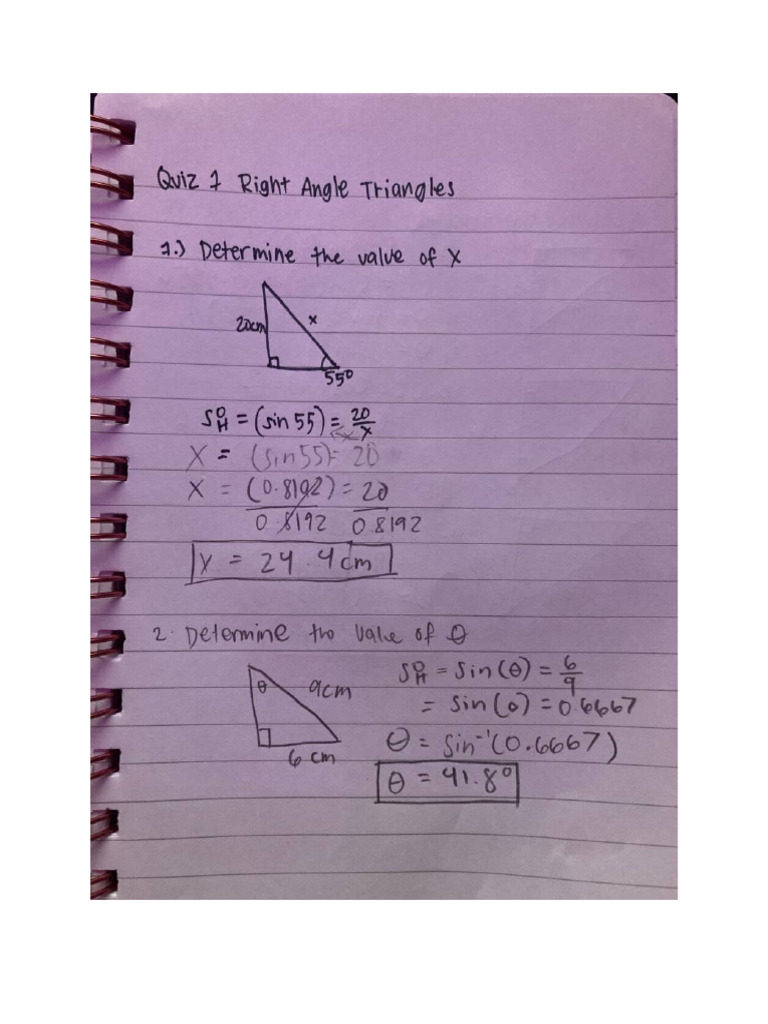 Quiz 1 Right Angle Triangles
1.) Determine the value of x
20cm
x
55°
S O/H = (sin 55) = 20/x
X = (sin 55) = 20
X = (0.8192) = 20
0.8192 0.8192
x = 24.4cm
2. Determine the value of θ
θ 9cm
6 cm
S O/H = sin(θ) = 6/9
= sin(θ) = 0.6667
θ = sin⁻¹(0.6667)
θ = 41.8°